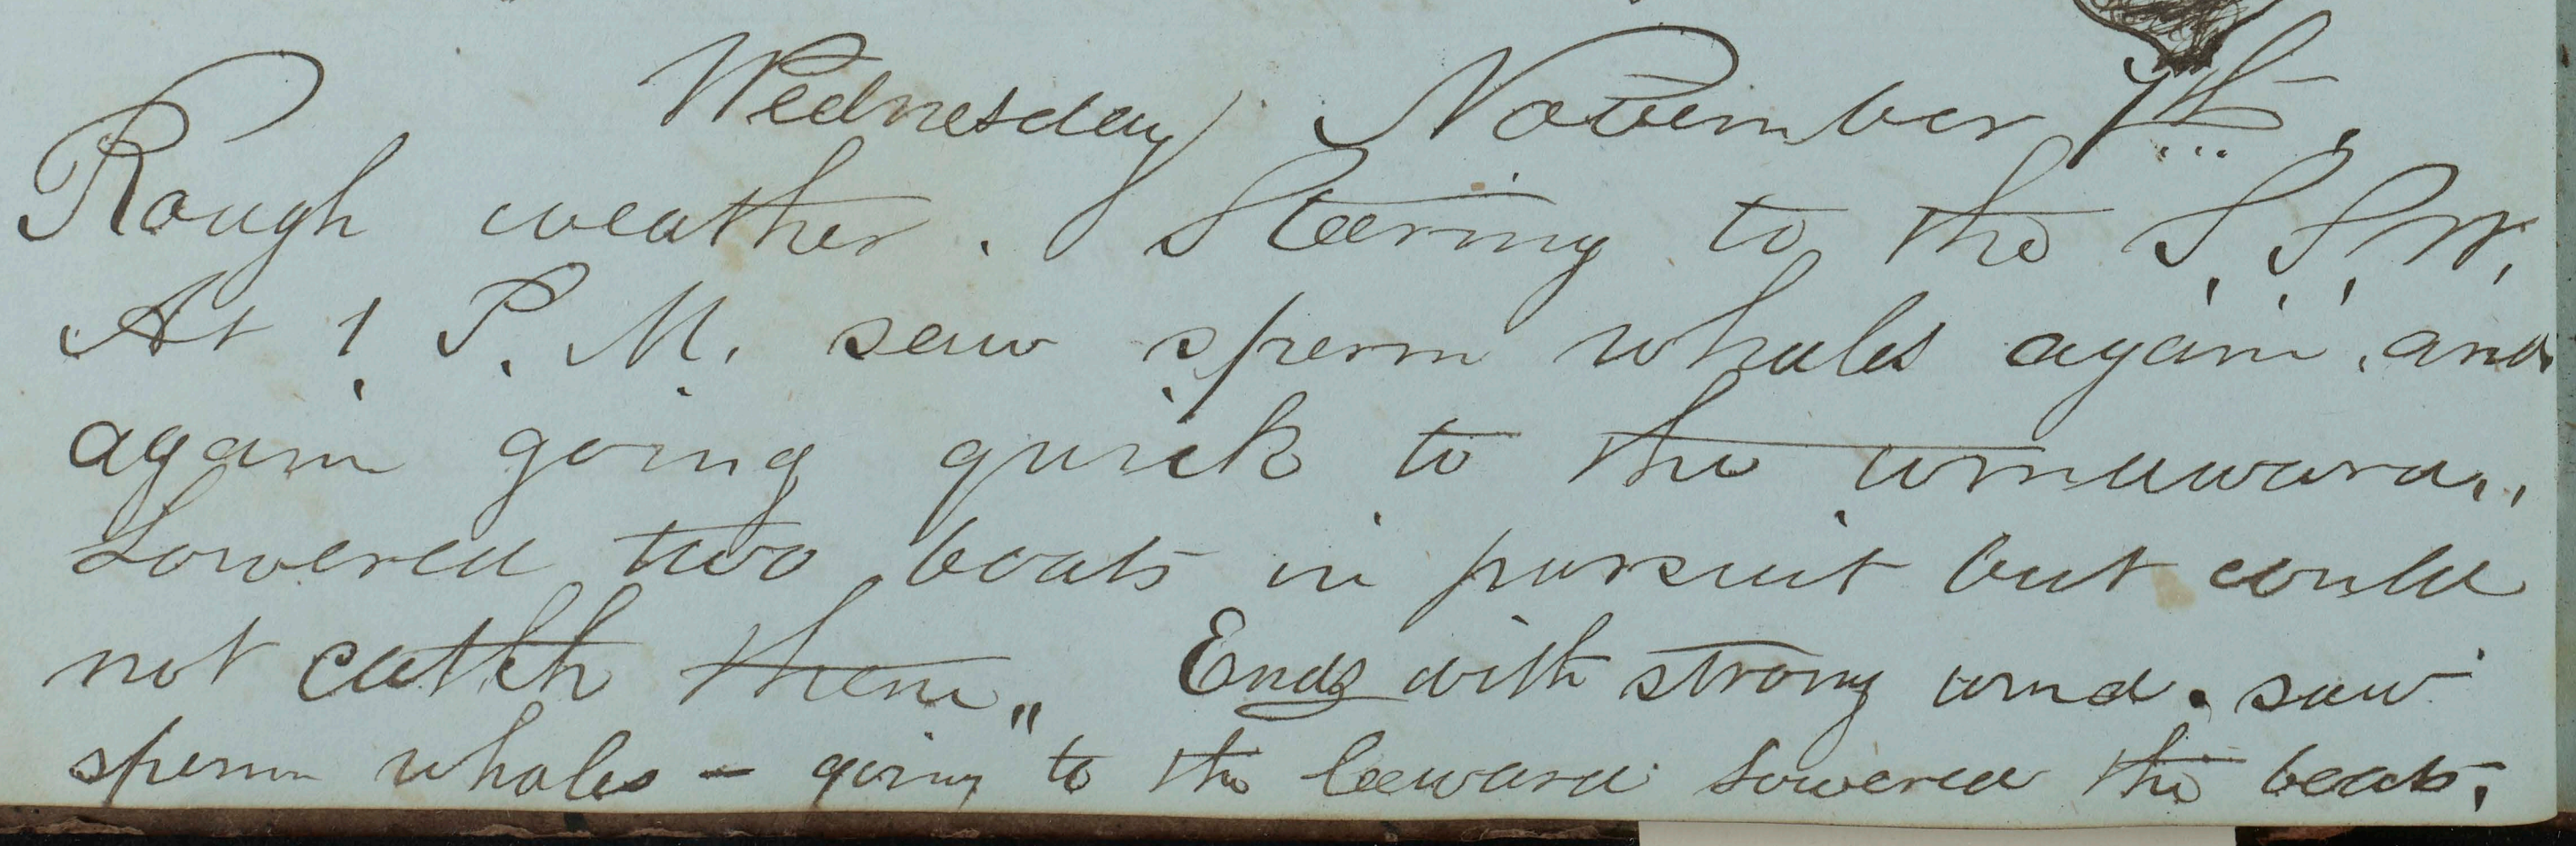 Wednesday November 7th.
Rough weather. Steering to the S. S. W.
At 1 P. M. saw sperm whales again, and
again going quick to the windward,,
Lowered two boats in pursuit but could
not catch them,, Ends with strong wind. saw
sperm whales – going to the leeward lowered the boats.